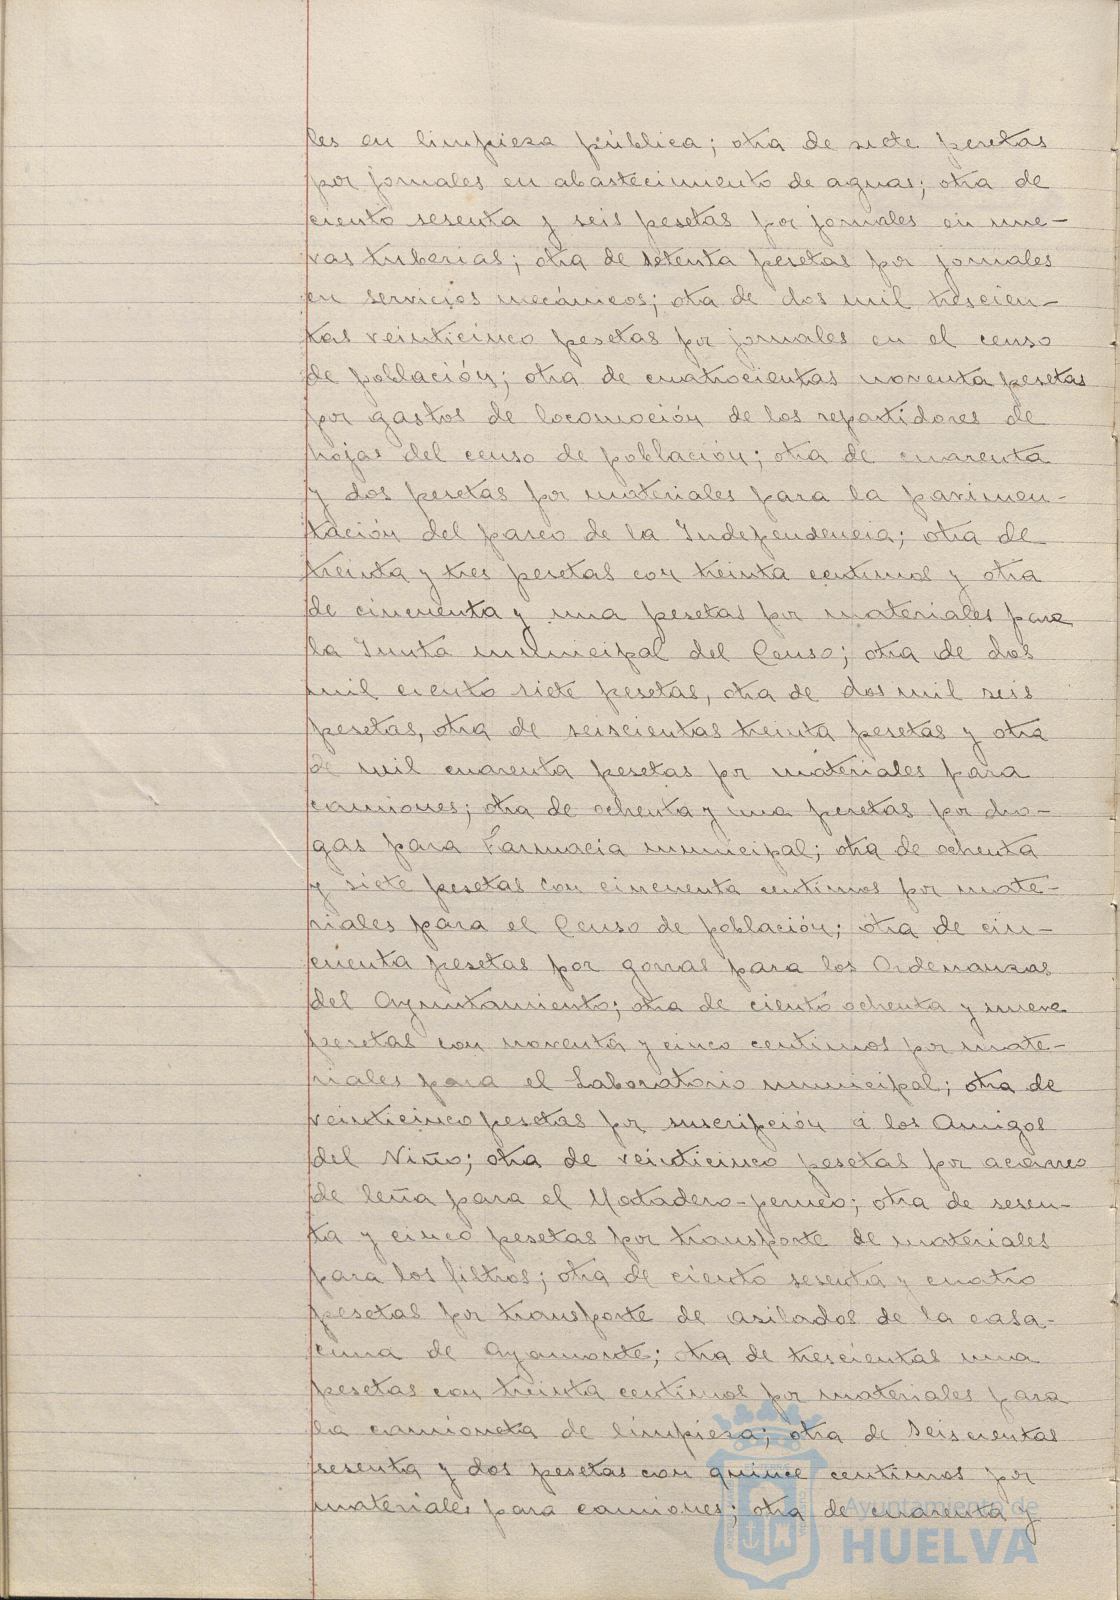 les en limpieza pública; otra de siete pesetas
por jornales en abastecimiento de aguas; otra de
ciento sesenta y seis pesetas por jornales en nue-
vas tuberias; otra de setenta pesetas por jornales
en servicios mecánicos; otra de dos mil trescien-
tas veinticinco pesetas por jornales en el censo
de población; otra de cuatrocientas noventa pesetas
por gastos de locomoción de los repartidores de
hojas del censo de población; otra de cuarenta
y dos pesetas por materiales para la pavimen-
tación del paseo de la Independencia; otra de
treinta y tres pesetas con treinta centimos y otra
de cincuenta y una pesetas por materiales para
la Junta municipal del Censo; otra de dos
mil ciento siete pesetas, otra de dos mil seis
pesetas, otra de seiscientas treinta pesetas y otra
de mil cuarenta pesetas por materiales para
camiones; otra de ochenta y una pesetas por dro-
gas para Farmacia municipal; otra de ochenta
y siete pesetas con cincuenta centimos por mate-
riales para el Censo de población; otra de cin-
cuenta pesetas por gorras para los Ordenanzas
del Ayuntamiento; otra de ciento ochenta y nueve
pesetas con noventa y cinco centimos por mate-
riales para el Laboratorio municipal; otra de
veinticinco pesetas por suscripción á los Amigos
del Niño; otra de veinticinco pesetas por acarreo
de leña para el Matadero-perreo; otra de sesen-
ta y cinco pesetas por transporte de materiales
para los filtros; otra de ciento sesenta y cuatro
pesetas por transporte de asilados de la casa-
cuna de Ayamonte; otra de trescientas una
pesetas con treinta centimos por materiales para
la camioneta de limpieza; otra de seiscientas
sesenta y dos pesetas con quince centimos por
materiales para camiones; otra de cuarenta y
Ayuntamiento de
HUELVA